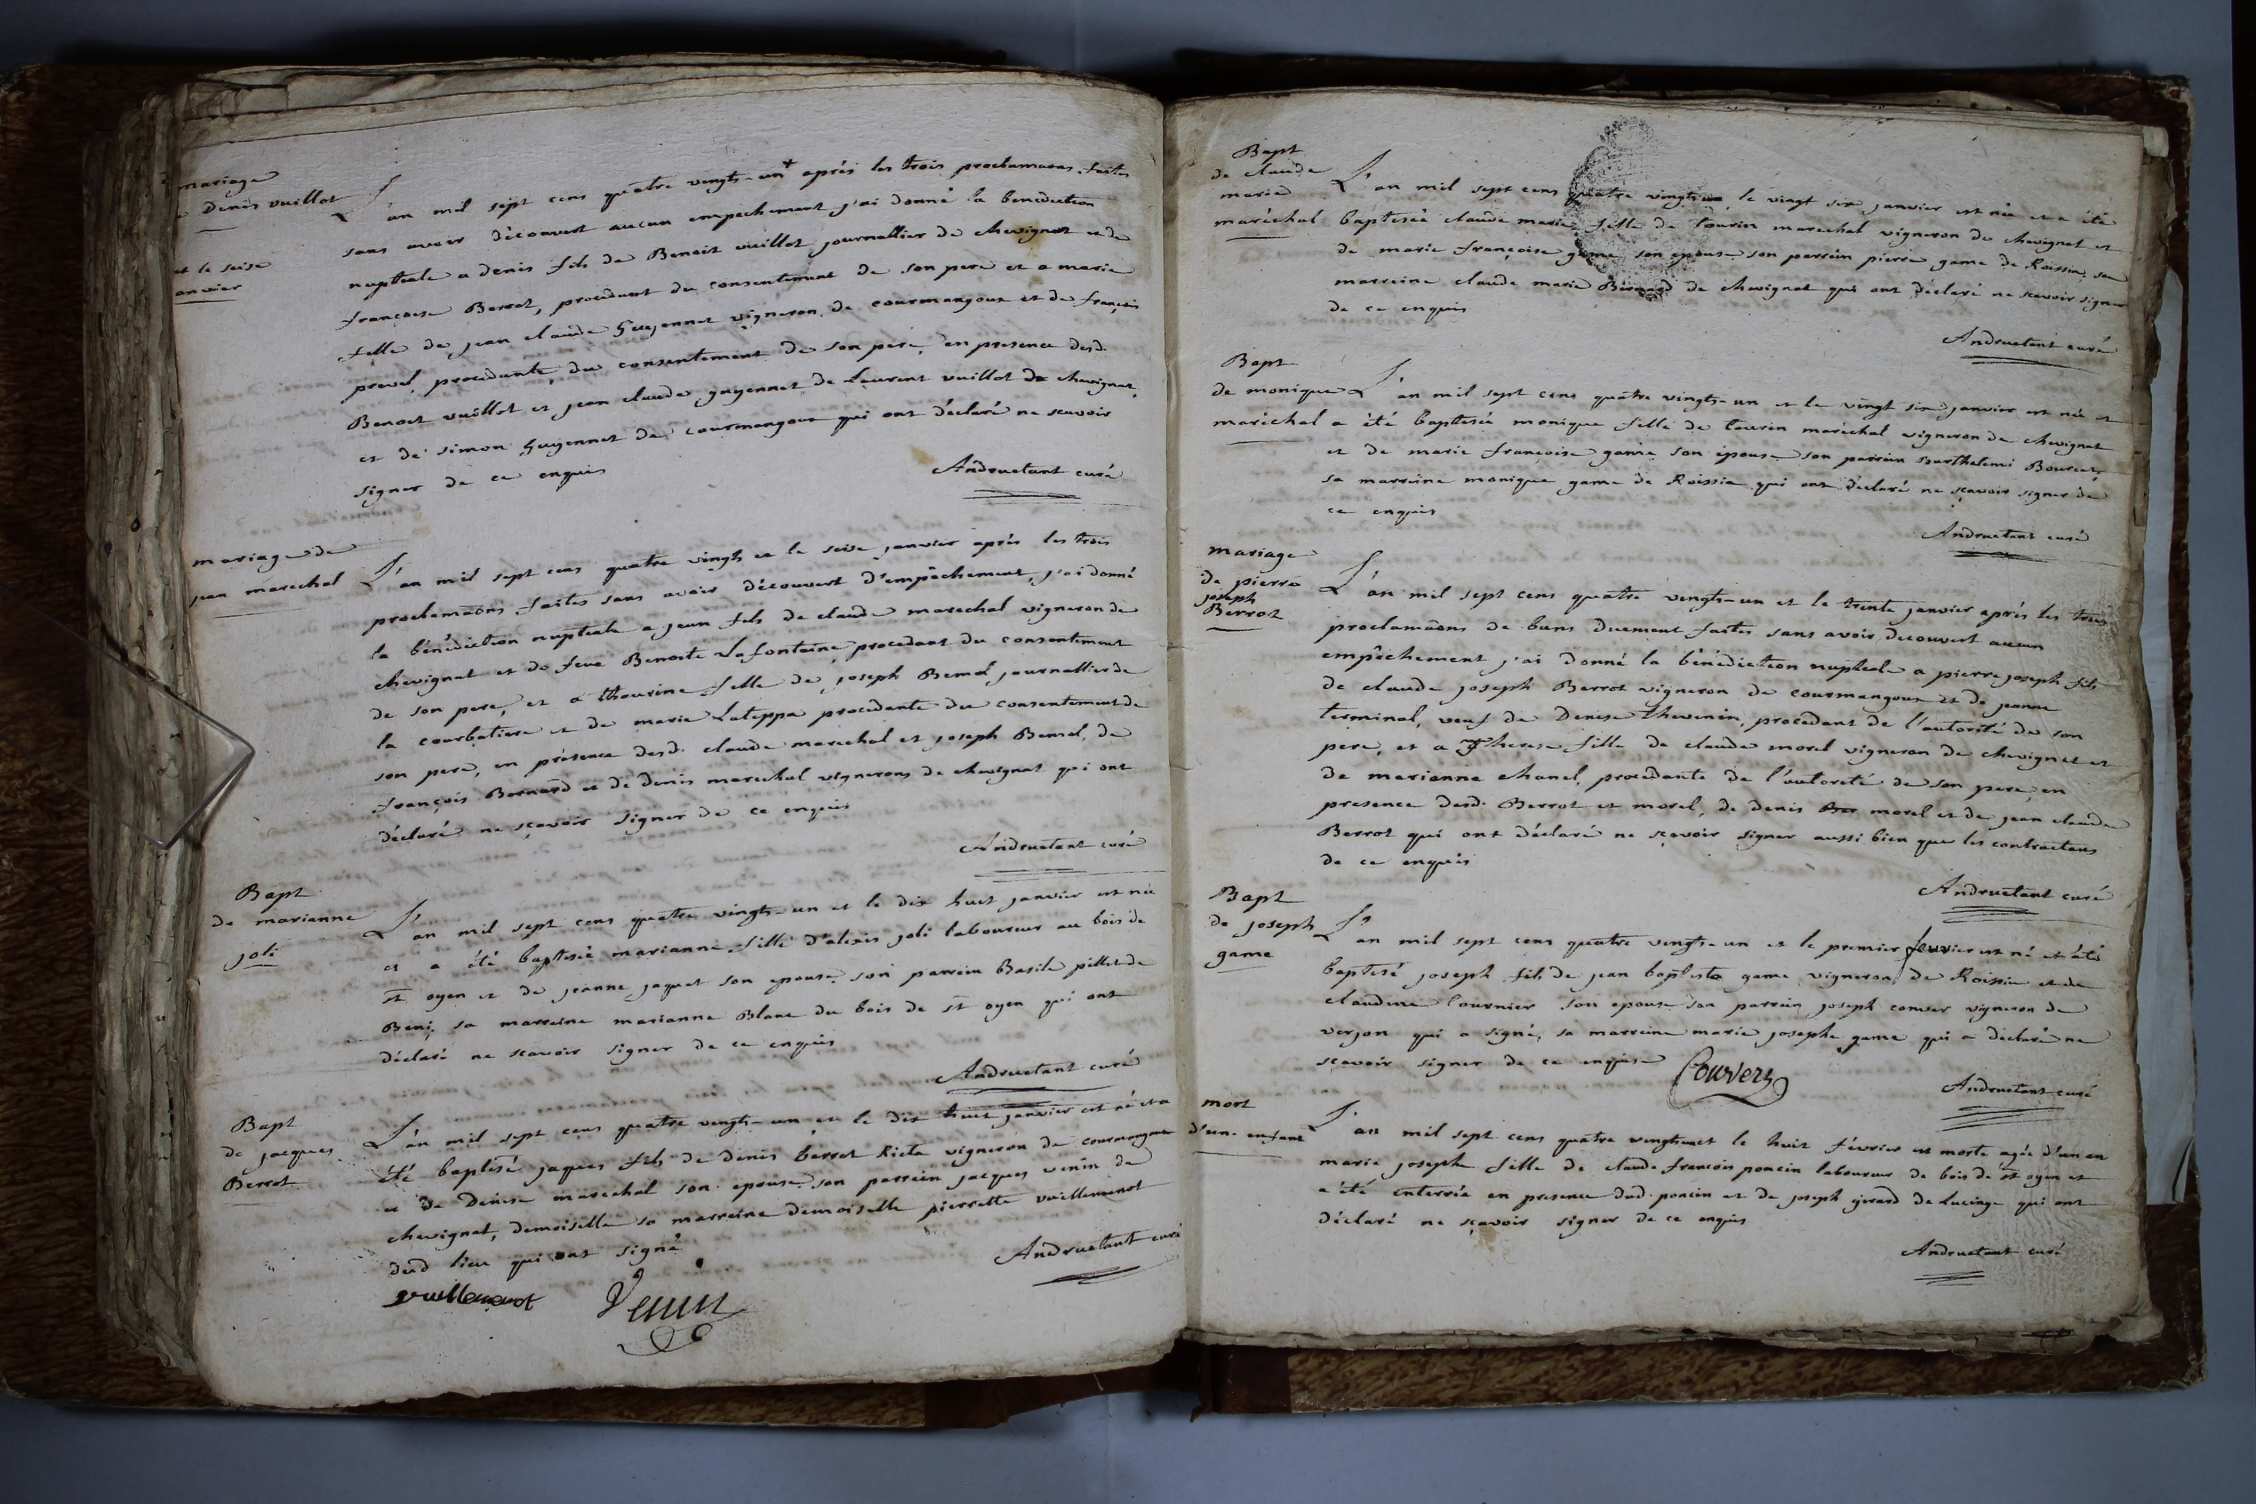 mariage
denis vuillot
et le seise
janvier
L'an mil sept cens quatre vingts-un + après les trois proclamaõns faites
sans avoir découvert aucun empechement j'ai donné la benediction
nuptiale a denis fils de Benoit vuillot journallier de chevignat et de
françoise Berrot, procedant du consentement de son pere et a marie
fille de jean claude guyennet vigneron de courmangoux et de françoise
prevel, procedante du consentement de son pere, en presence desd.
Benoit vuillot et jean claude guyennet de Laurent vuillot de chevignat,
et de simon guyennet de courmangoux qui ont déclaré ne scavoir
signer de ce enquis
Andruetant curé
mariage de
jean marechal
L'an mil sept cens quatre vingts et le seise janvier après les trois
proclamaõns faites sans avoir découvert d'empêchement, j'ai donné
la bénédiction nuptiale a jean fils de claude marechal vigneron de
chevignat et de feue Benoite Lafontaine procedant du consentement
de son pere, et a thourine fille de joseph Bemol journallier de
la courbatiere et de marie Lateppa procedante du consentement de
son pere, en présence desd. claude marechal et joseph Bemol, de
françois Bernard et de denis marechal vignerons de chevignat qui ont
déclaré ne sçavoir signer de ce enquis
Andruetant curé
Bapt
de marianne
joli
L'an mil sept cens quatre vingts-un et le dix huit janvier est née
et a été baptisée marianne fille d'alexis joli laboureur au bois de
st oyen et de jeanne jaquet son epouse, son parrein Basile pillet de
Beni, sa marreine marianne Blanc du bois de st oyen qui ont
déclaré ne scavoir signer de ce enquis
Andruetant curé
Bapt
de jacques
Berrot
L'an mil sept cens quatre vingts-un et le dix huit janvier est né et a
été baptisé jaques fils de denis berrot Rieta vigneron de courmangoux
et de denise marechal son epouse, son parrein jacques venin de
chevignat, demoiselle sa marreine demoiselle pierrette vuillemenot
dud lieu qui ont signé
Andruetant curé
vuillemenot Venin
Bapt
de claude
marie
maréchal
L'an mil sept cens quatre vingts un le vingt six janvier est née et a été
baptisée claude marie fille de tourin marechal vigneron de chevignat et
de marie françoise game son epouse son parrein pierre game de Roissia, sa
marreine claude marie Bernard de chevignat qui ont déclaré ne scavoir signer
de ce enquis
Andruetant curé
Bapt
de monique
maréchal
L'an mil sept cens quatre vingts-un et le vingt six janvier est née et
a été baptisée monique fille de tourin maréchal vigneron de chevignat
et de marie françoise game son épouse son parrein Barthelemi
sa marreine monique game de Roissia qui ont déclaré ne sçavoir signer de
ce enquis
Andruetant curé
mariage
de pierre
joseph
Berrot
L'an mil sept cens quatre vingts-un et le trente janvier après les trois
proclamaõns de bans duement faites sans avoir découvert aucun
empêchement j'ai donné la bénédiction nuptiale a pierre joseph fils
de claude joseph Berrot vigneron de courmangoux et de jeanne
terminal, veuf de denise thevenin, procedant de l'autorité de son
pere, et a Therese fille de claude morel vigneron de chevignat et
de marianne chanel, procedante de l'autorité de son pere, en
presence desd. Berrot et morel, de denis Ber morel et de jean claude
Berrot qui ont déclaré ne sçavoir signer aussi bien que les contractans
de ce enquis
Andruetant curé
Bapt
de joseph
game
L'an mil sept cens quatre vingts-un et le premier fevrier est né et été
baptisé joseph fils de jean baptiste game vigneron de Roissia et de
claudine tournier son epouse son parrein joseph convers vigneron de
verjon qui a signé, sa marreine marie josephe game qui a déclaré ne
scavoir signer de ce enquise Convers
Andruetant curé
mort
d'une enfant
L'an mil sept cens quatre vingts un et le huit février est morte agée d'un an
marie josephe fille de claude françois poncin laboureur de bois de st oyen et
a été enterrée en presence dud. poncin et de joseph girard de Lucinge qui ont
déclaré ne sçavoir signer de ce enquis
Andruetant curé